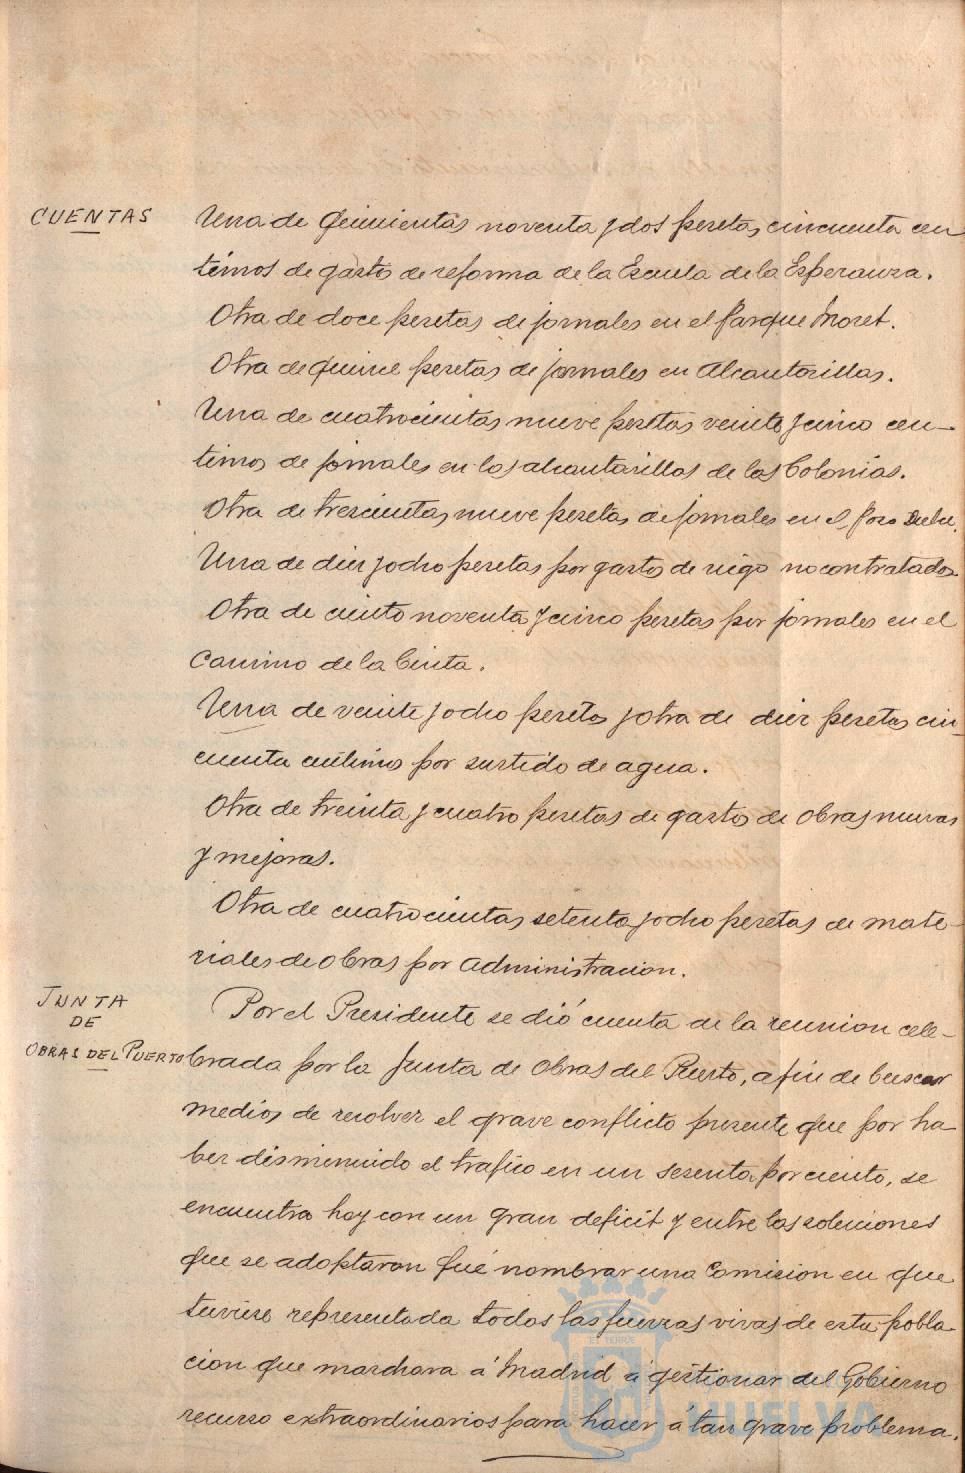 CUENTAS
Una de Quinientas noventa y dos pesetas cincuenta cen
timos de gastos de reforma de la Escuela de la Esperanza.
Otra de doce pesetas de jornales en el Parque Moret.
Otra de quince pesetas de jornales en Alcantarillas.
Una de cuatrocientas nueve pesetas veinte y cinco cen-
timos de jornales en las alcantarillas de las Colonias.
Otra de trescientas nueve pesetas de jornales en el Pozo Dulce.
Una de diez y ocho pesetas por gastos de riego no contratados.
Otra de ciento noventa y cinco pesetas por jornales en el
Camino de la Cinta.
Una de veinte y ocho pesetas y otra de diez pesetas cin-
cuenta centimos por surtido de agua.
Otra de treinta y cuatro pesetas de gastos de Obras nuevas
y mejoras.
Otra de cuatrocientas setenta y ocho pesetas de mate-
riales de obras por administracion.
JUNTA
DE
OBRAS DEL PUERTO
Por el Presidente se dió cuenta de la reunion cele-
brada por la Junta de Obras del Puerto, a fin de buscar
medios de resolver el grave conflicto presente que por ha
ber disminuido el trafico en un sesenta por ciento, se
encuentra hoy con un gran deficit y entre las soluciones
que se adoptaron fué nombrar una Comision en que
tuviese representada todas las fuerzas vivas de esta pobla-
cion que marchara á Madrid á gestionar del Gobierno
recurso extraordinarios para hacer á tan grave problema.
HUELVA